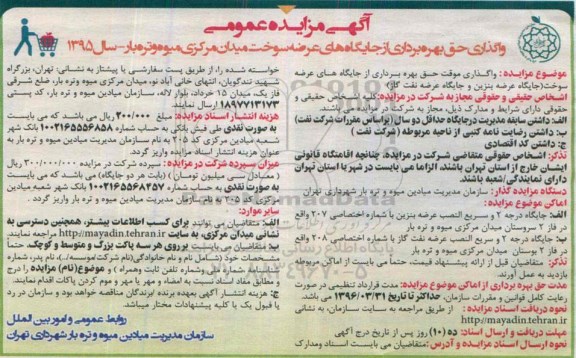 آگهی مزایده عمومی
واگذاری حق بهره برداری از جایگاه های عرضه سوخت میدان مرکزی میوه و تره بار - سال ۱۳۹۵
موضوع مزایده: واگذاری موقت حق بهره برداری از جایگاه های عرضه
سوخت (جایگاه عرضه بنزین و جایگاه عرضه نفت گاز)
اشخاص حقیقی و حقوقی مجاز به شرکت در مزایده: کلیه اشخاص حقیقی و
حقوقی دارای شرایط و مدارک ذیل، مجاز به شرکت در مزایده می باشند.
الف: داشتن سابقه مدیریت در جایگاه حداقل دو سال (براساس مقررات شرکت نفت)
ب: داشتن رضایت نامه کتبی از ناحیه مربوطه (شرکت نفت)
ج: داشتن کد اقتصادی
تذکر: اشخاص حقوقی متقاضی شرکت در مزایده، چنانچه اقامتگاه قانونی
ایشان خارج از استان تهران باشند، الزاما می بایست در شهر یا استان تهران
دارای نمایندگی/شعبه باشند.
دستگاه مزایده گذار: سازمان مدیریت میادین میوه و تره بار شهرداری تهران
اماکن موضوع مزایده:
الف: جایگاه درجه ۲ و سریع النصب عرضه بنزین با شماره اختصاصی ۲۰۷ واقع
در فاز ۲ سروستان میدان مرکزی میوه و تره بار
ب: جایگاه درجه ۲ و سریع النصب عرضه نفت گاز با شماره اختصاصی ۲۰۸ واقع
در فاز ۲ سروستان میدان مرکزی میوه و تره بار
تذکر: متقاضیان قبل از ارائه پیشنهاد قیمت، حتماً می بایست از اماکن مربوطه
بازدید به عمل آورند.
مدت حق بهره برداری از اماکن موضوع مزایده: مدت قرارداد تنظیمی در صورت
رعایت کامل قوانین و مقررات سازمان، حداکثر تا تاریخ ۱۳۹۶/۰۳/۳۱ می باشد.
نحوه دریافت اسناد مزایده: از طریق مراجعه به سایت سازمان، به نشانی
http://mayadin.tehran.ir
مهلت دریافت و ارسال اسناد: ده (۱۰) روز پس از تاریخ درج آگهی
نحوه ارسال اسناد مزایده و آدرس: متقاضیان می بایست اسناد ومدارک
خواسته شده را، از طریق پست سفارشی یا پیشتاز به نشانی: تهران، بزرگراه
شهید تندگویان، انتهای خانی آباد نو، میدان مرکزی میوه و تره بار، ضلع شرقی
فاز یک، میدان ۱۵ خرداد، بلوار لاله، سازمان میادین میوه و تره بار، کد پستی
۱۸۹۷۷۱۳۱۷۳ ارسال نمایند.
هزینه انتشار اسناد مزایده: مبلغ ۲۰۰/۰۰۰ ریال می باشد که می بایست
به صورت نقدی طی فیش بانکی به حساب شماره ۱۰۰۲۱۶۵۵۵۶۸۵۸ بانک شهر
شعبه میادین مرکزی کد ۲۰۵ به نام سازمان مدیریت میادین میوه و تره بار به
عنوان هزینه انتشار اسناد مزایده واریز گردد.
میزان سپرده شرکت در مزایده: سپرده شرکت در مزایده ۳۰۰/۰۰۰/۰۰۰ ریال
(معادل سی میلیون تومان) (بابت هر دو جایگاه) می باشد که می بایست
به صورت نقدی به حساب شماره ۱۰۰۲۱۶۵۵۶۸۴۵۷ بانک شهر شعبه میادین
مرکزی کد ۲۰۵ به نام سازمان مدیریت میادین میوه و تره بار واریز گردد.
سایر موارد:
الف: متقاضیان می توانند برای کسب اطلاعات بیشتر، همچنین دسترسی به
نشانی میدان مرکزی، به سایت http://mayadin.tehran.ir مراجعه نمایند.
ب: متقاضیان می بایست بر روی هر سه پاکت بزرگ و متوسط و کوچک، حتماً
مشخصات خود (شامل نام و نام خانوادگی (نام شرکت/موسسه/...)، نام پدر، شماره
شناسنامه، شماره ملی و شماره تلفن ثابت وهمراه) و موضوع (نام) مزایده را درج
و مطابق مفاد اسناد نسبت به امضاء و مهر یا مهر و موم کردن پاکات اقدام نمایند.
ج: هزینه انتشار آگهی بعهده برنده /برندگان مناقصه خواهد بود و سازمان در رد
یا قبول یک یا کلیه پیشنهادات مختار میباشد.
روابط عمومی و امور بین الملل
سازمان مدیریت میادین میوه و تره بار شهرداری تهران